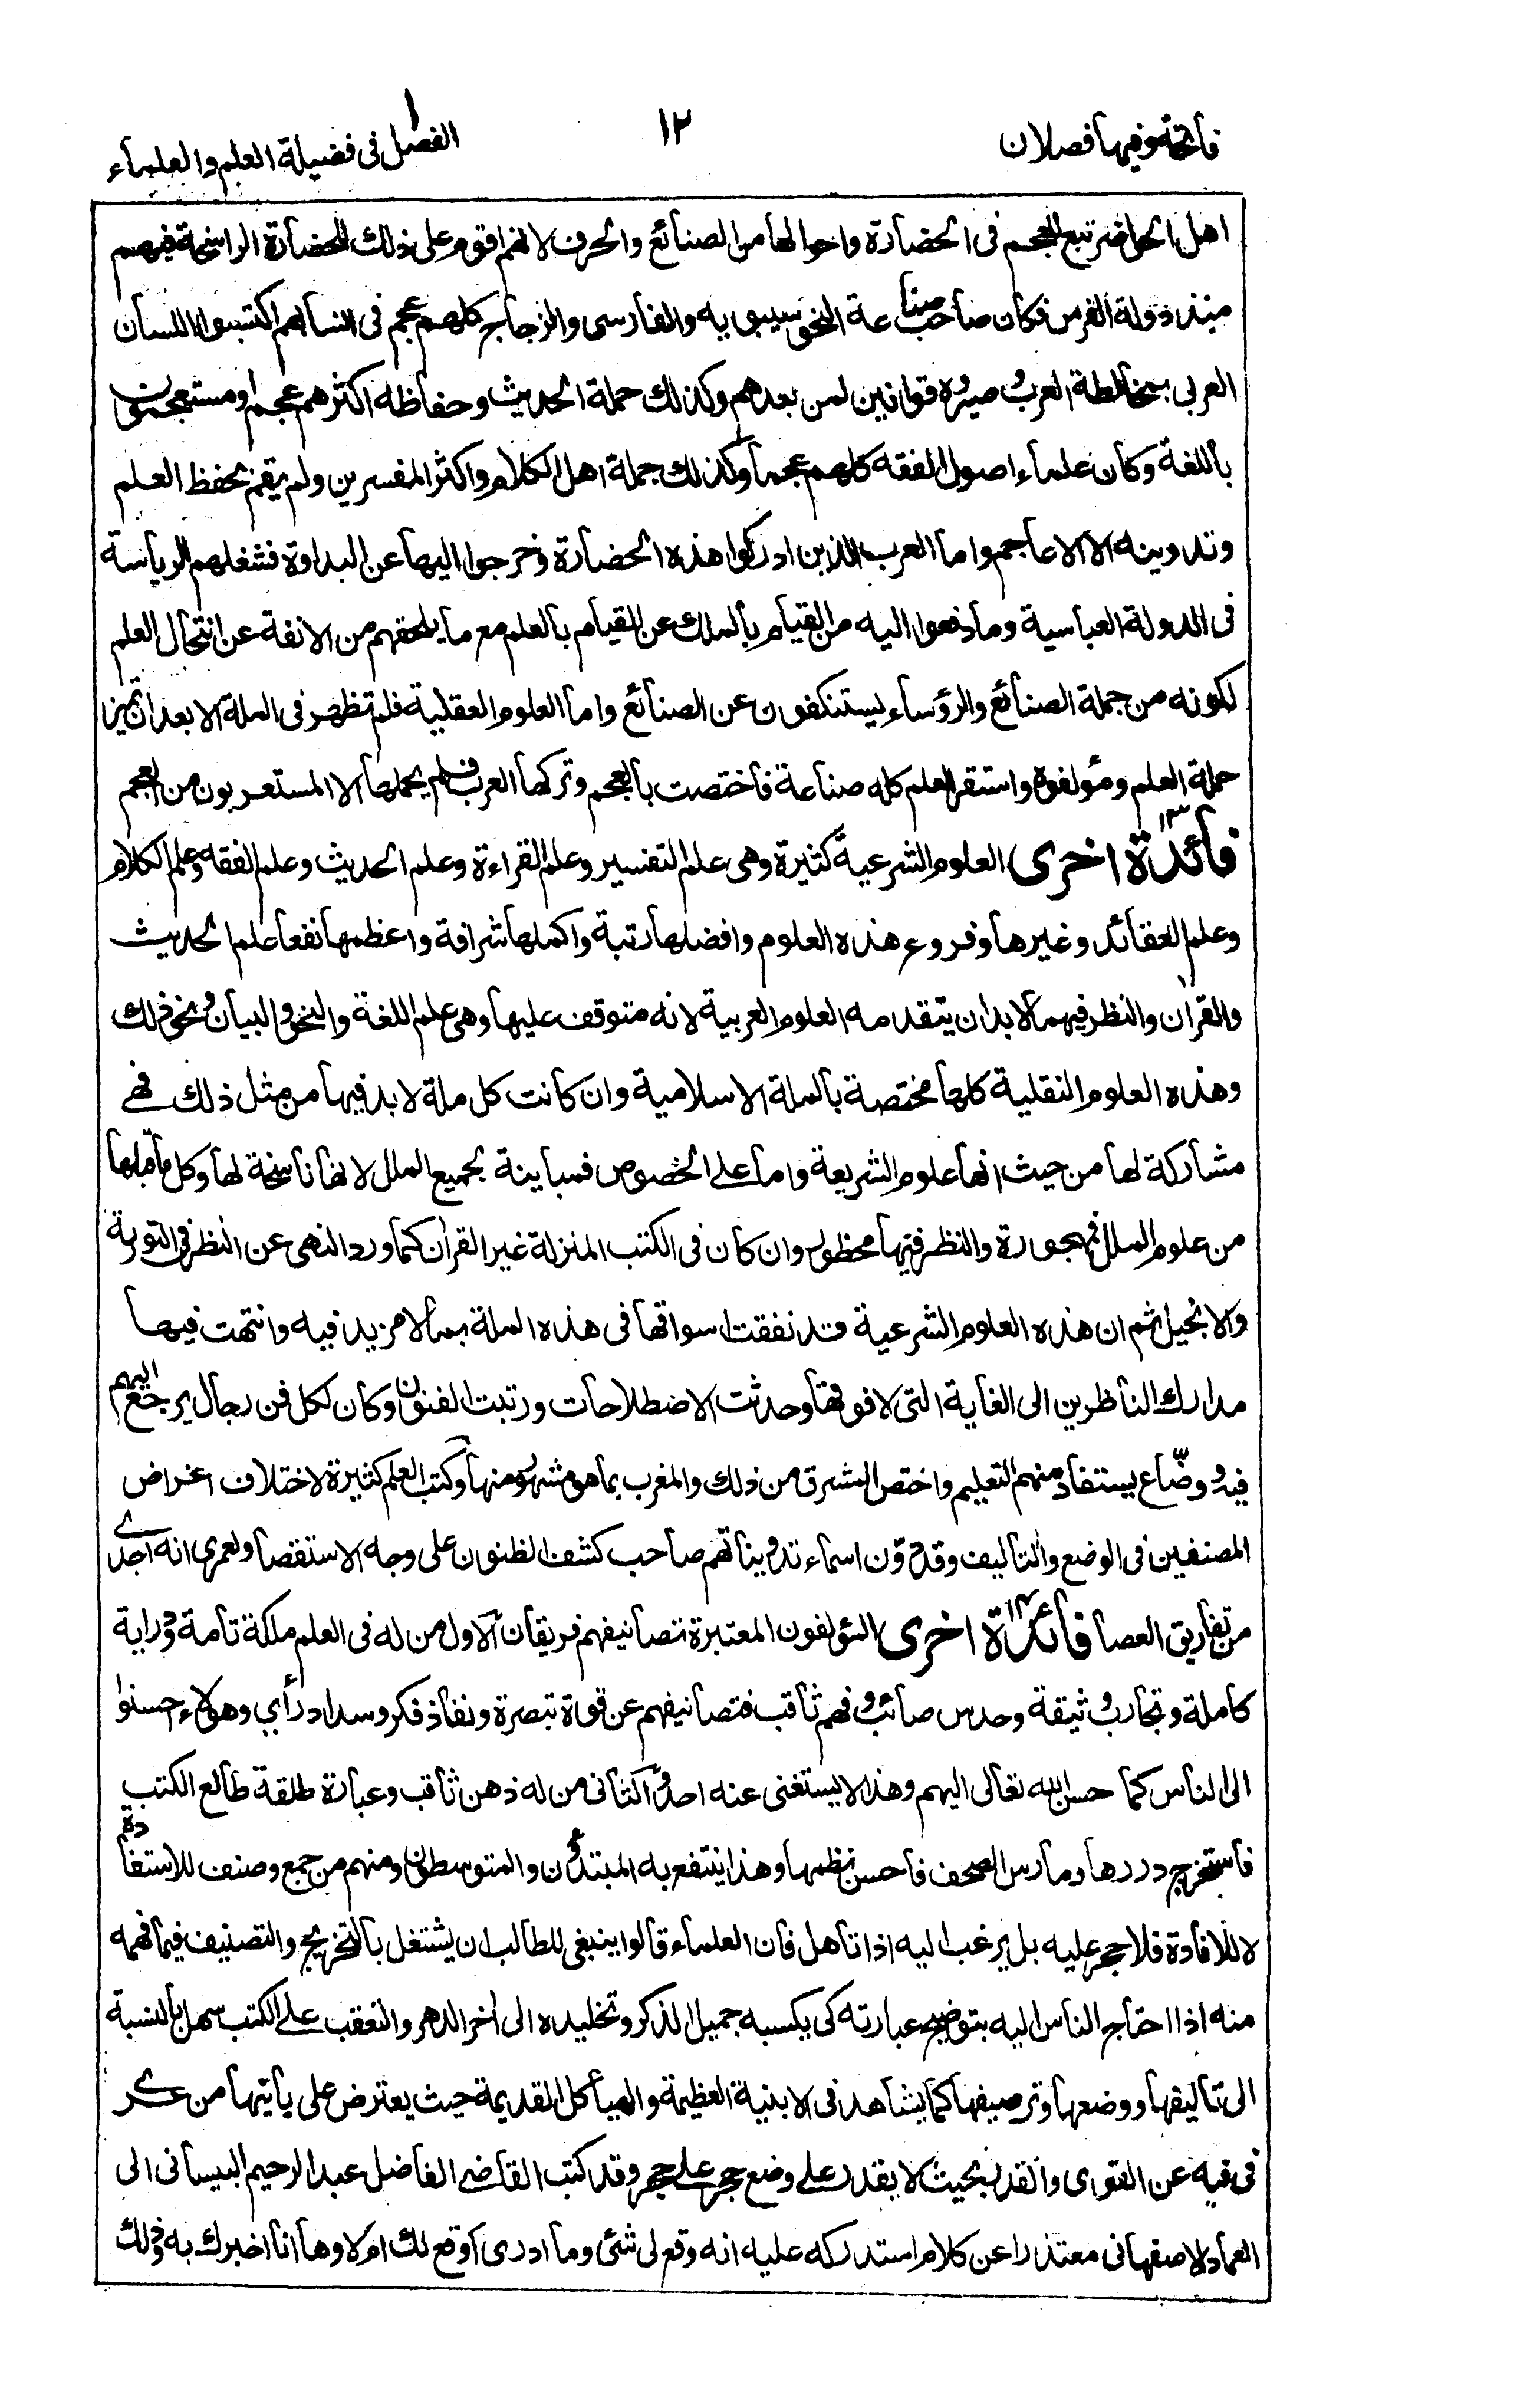 فاتحة وفيها فصلان
١٢
الفصل ١ فى فضيلة العلم والعلماء
اهل الحواضر تبع للعجم فى الحضارة واحوالها من الصنائع والحرف لانهم اقوم على ذلك للحضارة الراسخة فيهم
منذ دولة الفرس فكان صاحب صناعة النحو سيبويه والفارسى والزجاج كلهم عجم فى انسابهم اكتسبوا اللسان
العربى بمخالطة العرب وصيروه قوانين لمن بعدهم وكذلك حملة الحديث وحفاظه اكثرهم عجم او مستعجمون
باللغة وكان علماء اصول الفقه كلهم عجما وكذلك جملة اهل الكلام واكثر المفسرين ولم يقم بحفظ العلم
وتدوينه الا الاعاجم واما العرب الذين ادركوا هذه الحضارة وخرجوا اليها عن البداوة فشغلهم الرياسة
فى الدولة العباسية وما دفعوا اليه من القيام بالملك عن القيام بالعلم مع ما يلحقهم من الانفة عن انتحال العلم
لكونه من جملة الصنائع والرؤساء يستنكفون عن الصنائع واما العلوم العقلية فلم تظهر فى الملة الا بعد ان تميز
حملة العلم ومؤلفوه واستقر العلم كله صناعة فاختصت بالعجم وتركها العرب فلم يحملها الا المستعربون من العجم
فائدة ١٣ اخرى العلوم الشرعية كثيرة وهى علم التفسير وعلم القراءة وعلم الحديث وعلم الفقه وعلم الكلام
وعلم العقائد وغيرها وفروع هذه العلوم وافضلها رتبة واكملها شرافة واعظمها نفعا علم الحديث
والقرآن والنظر فيهما لابد ان يتقدمه العلوم العربية لانه متوقف عليها وهى علم اللغة والنحو والبيان ونحو ذلك
وهذه العلوم النقلية كلها مختصة بالملة الاسلامية وان كانت كل ملة لابد فيها من مثل ذلك فهى
مشاركة لها من حيث انها علوم الشريعة واما على الخصوص فمباينة لجميع الملل لانها ناسخة لها وكل ما قبلها
من علوم الملل فمهجورة والنظر فيها محظور وان كان فى الكتب المنزلة غير القرآن كما ورد النهى عن النظر فى التورية
والانجيل ثم ان هذه العلوم الشرعية قد نفقت اسواقها فى هذه الملة بما لا مزيد فيه وانتهت فيها
مدارك الناظرين الى الغاية التى لا فوقها وحدثت الاصطلاحات ورتبت الفنون وكان لكل فن رجال يرجع اليهم
فيه ووضّاع يستفاد منهم التعليم واختص المشرق من ذلك والمغرب بما هو مشهور منها وكتب العلم كثيرة لاختلاف اغراض
المصنفين فى الوضع والتأليف وقد دوّن اسماء تدويناتهم صاحب كشف الظنون على وجه الاستقصا ولعمرى انه اجدى
من تفاريق العصا فائدة ١٤ اخرى المؤلفون المعتبرة تصانيفهم فريقان الاول من له فى العلم ملكة تامة ودراية
كاملة وتجارب وثيقة وحدس صائب وفهم ثاقب فتصانيفهم عن قوة تبصرة ونفاذ فكر وسداد رأى وهولاء احسنوا
الى الناس كما احسن الله تعالى اليهم وهذا لا يستغنى عنه احد والثانى من له ذهن ثاقب وعبارة طلقة طالع الكتب
فاستخرج دررها ومارس الصحف فاحسن نظمها وهذا ينتفع به المبتدؤن والمتوسطون ومنهم من جمع وصنف للاستفادة
لا للافادة فلا حجر عليه بل يرغب اليه اذا تأهل فان العلماء قالوا ينبغى للطالب ان يشتغل بالتخريج والتصنيف فيما فهمه
منه اذا احتاج الناس اليه بتوضيح عبارته كى يكسبه جميل الذكر وتخليده الى آخر الدهر والتعقب على الكتب سهل بالنسبة
الى تأليفها ووضعها وترصيفها كما يشاهد فى الابنية العظيمة والهيأكل القديمة حيث يعترض على بأنيها من عرى
فى فيه عن القوى والقدر بحيث لا يقدر على وضع حجر على حجر وقد كتب القاضى الفاضل عبد الرحيم البيسانى الى
العماد الاصفهانى معتذرا عن كلام استدركه عليه انه وقع لى شئ وما ادرى أوقع لك ام لا وها انا اخبرك به وذلك